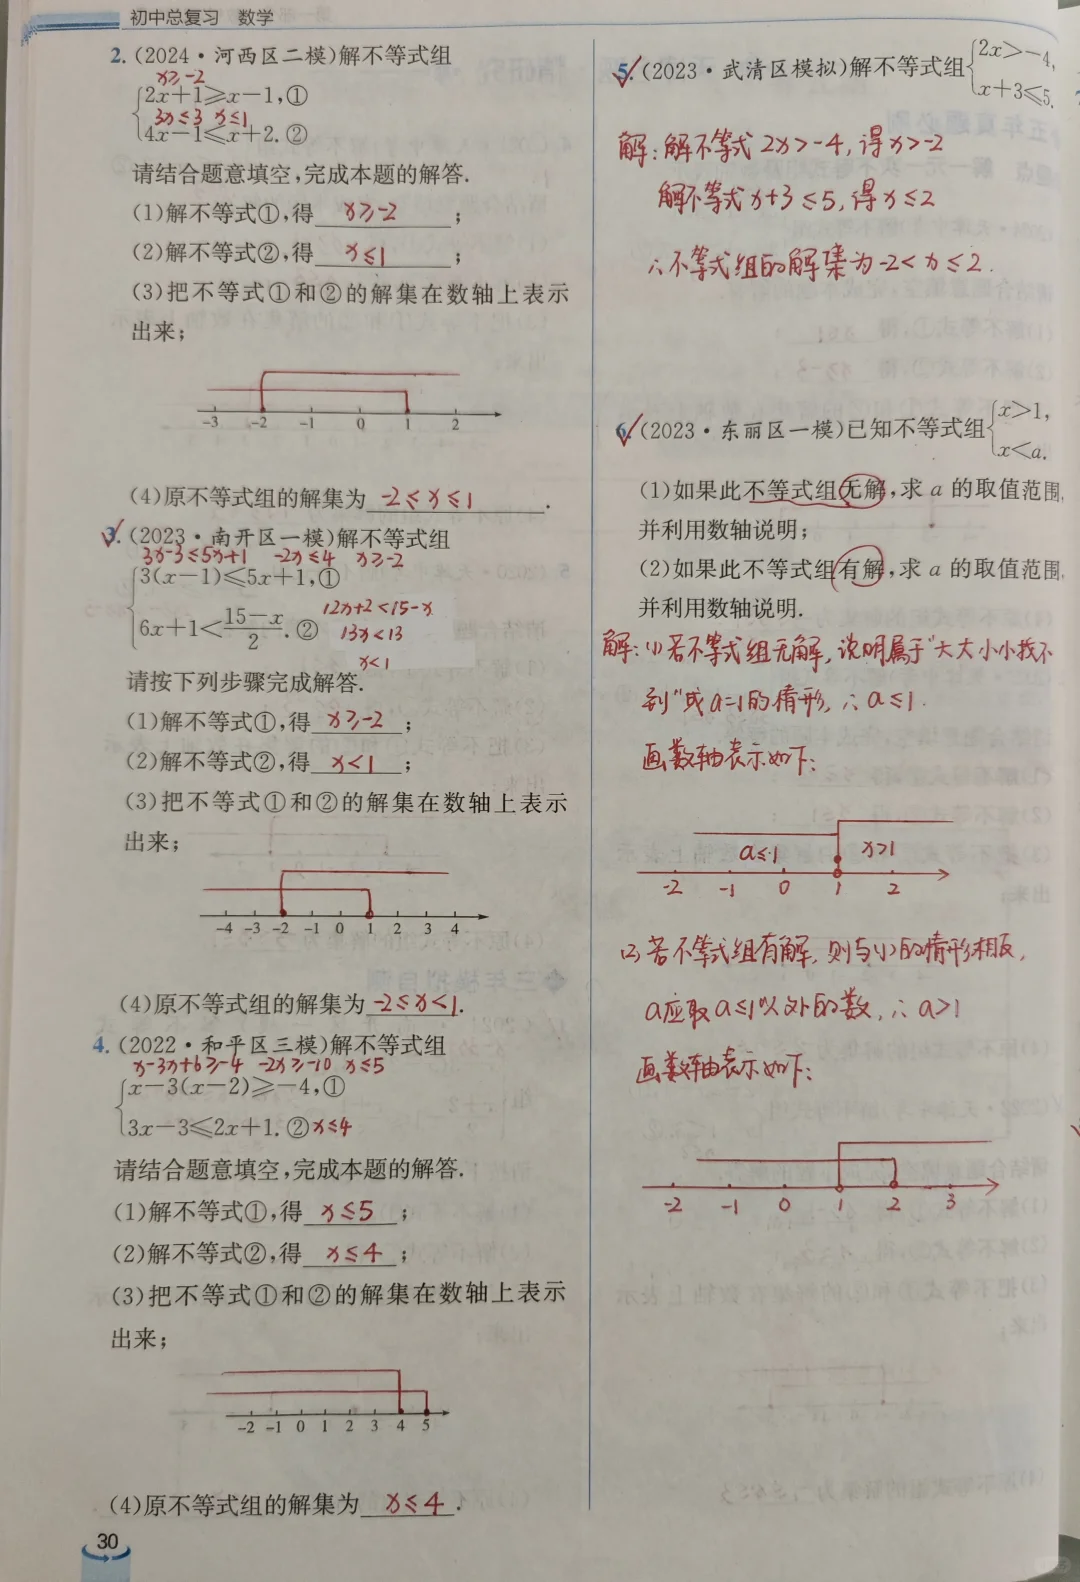 初中总复习 数学
2. (2024·河西区二模)解不等式组
x≥-2
2x+1≥x-1,①
3x≤3 x≤1
4x-1≤x+2.②
请结合题意填空,完成本题的解答.
(1)解不等式①,得 x≥-2 ;
(2)解不等式②,得 x≤1 ;
(3)把不等式①和②的解集在数轴上表示
出来;
-3 -2 -1 0 1 2
(4)原不等式组的解集为 -2≤x≤1 .
3. (2023·南开区一模)解不等式组
3x-3≤5x+1 -2x≤4 x≥-2
3(x-1)≤5x+1,①
6x+1<(15-x)/2.② 12x+2<15-x
13x<13
x<1
请按下列步骤完成解答.
(1)解不等式①,得 x≥-2 ;
(2)解不等式②,得 x<1 ;
(3)把不等式①和②的解集在数轴上表示
出来;
-4 -3 -2 -1 0 1 2 3 4
(4)原不等式组的解集为 -2≤x<1 .
4. (2022·和平区三模)解不等式组
x-3x+6≥-4 -2x≥-10 x≤5
x-3(x-2)≥-4,①
3x-3≤2x+1.② x≤4
请结合题意填空,完成本题的解答.
(1)解不等式①,得 x≤5 ;
(2)解不等式②,得 x≤4 ;
(3)把不等式①和②的解集在数轴上表示
出来;
-2 -1 0 1 2 3 4 5
(4)原不等式组的解集为 x≤4 .
30
5. (2023·武清区模拟)解不等式组
2x>-4,
x+3≤5.
解:解不等式2x>-4,得x>-2
解不等式x+3≤5,得x≤2
∴不等式组的解集为-2<x≤2.
6. (2023·东丽区一模)已知不等式组
x>1,
x<a.
(1)如果此不等式组无解,求a的取值范围,
并利用数轴说明;
(2)如果此不等式组有解,求a的取值范围,
并利用数轴说明.
解:(1)若不等式组无解,说明属于"大大小小找不
到"或a=1的情形,∴a≤1.
画数轴表示如下:
a≤1 x>1
-2 -1 0 1 2
(2)若不等式组有解,则与(1)的情形相反,
a应取a≤1以外的数,∴a>1
画数轴表示如下:
-2 -1 0 1 2 3